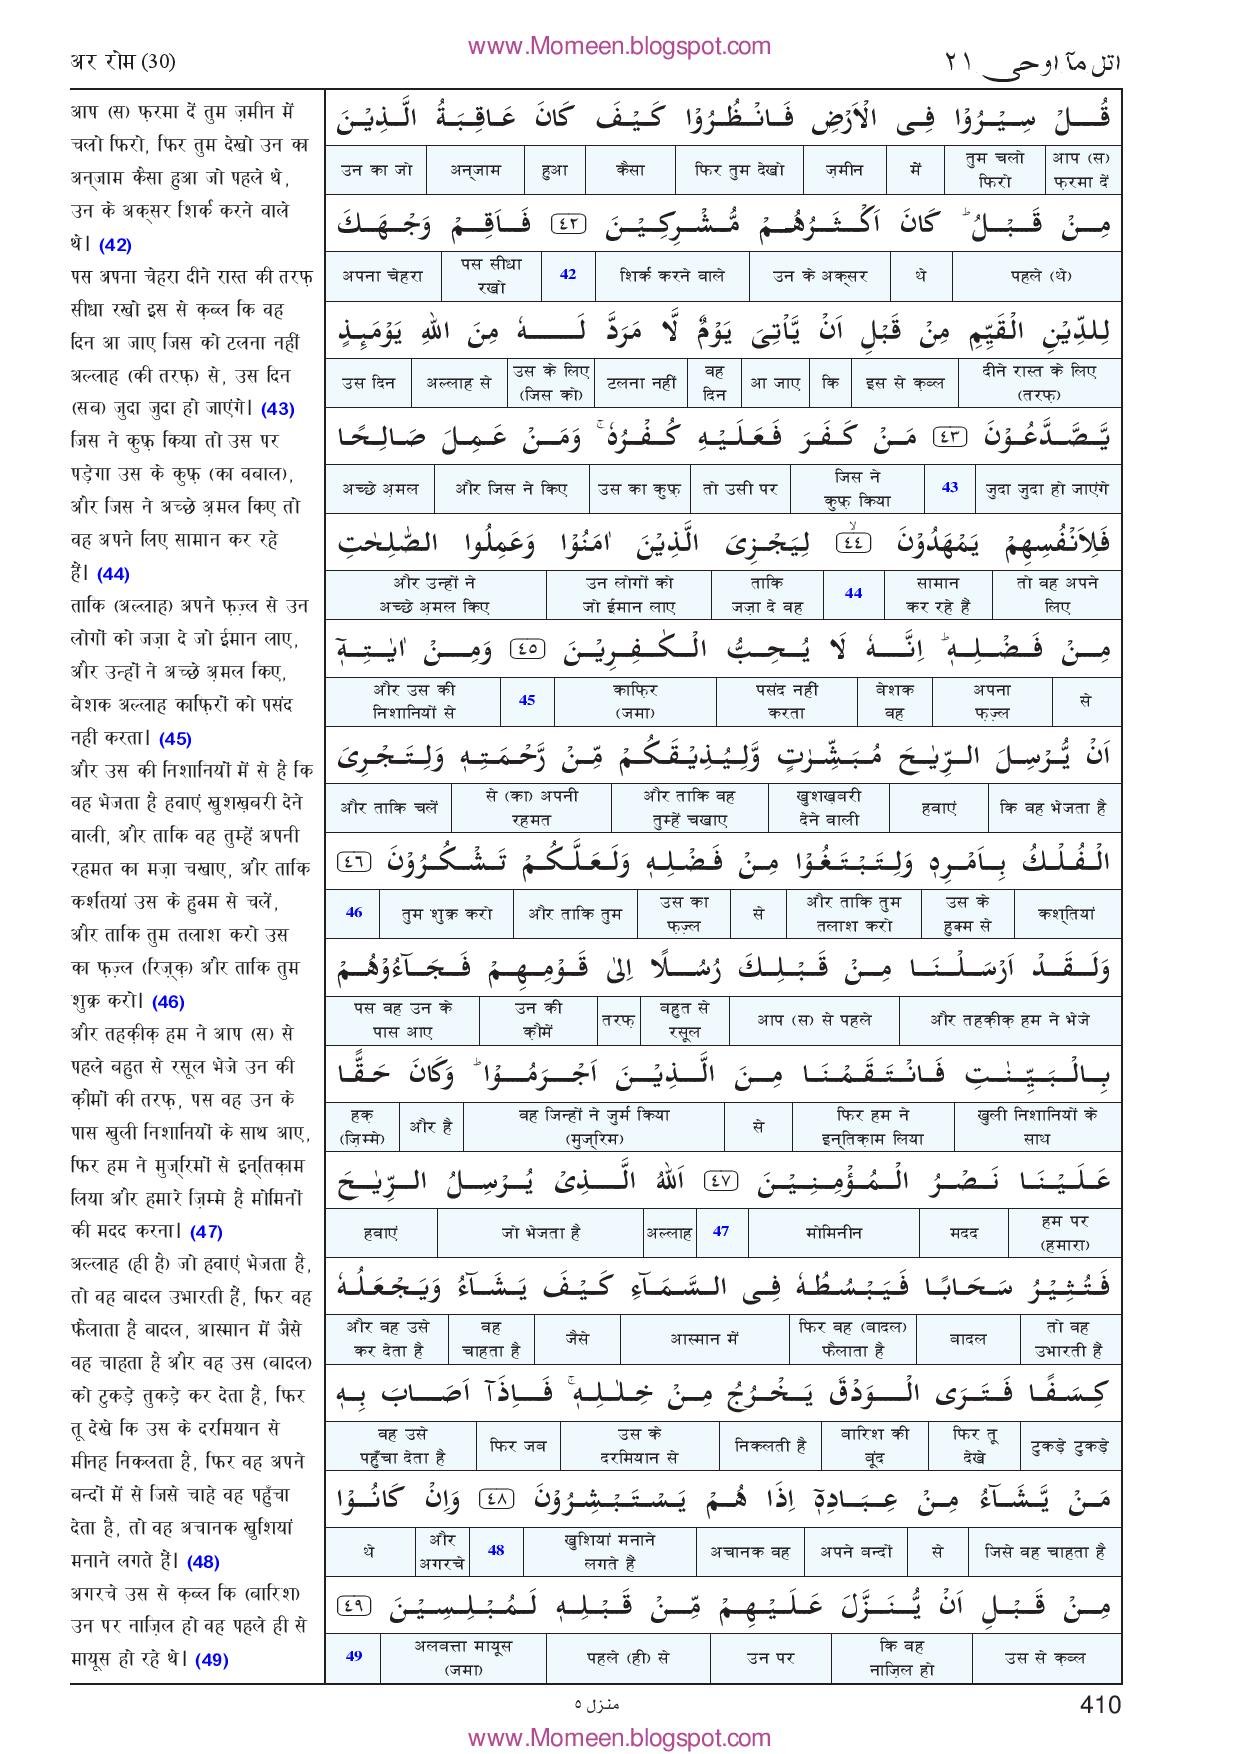 www.Momeen.blogspot.com
अर रोम (30)
اتل مآ اوحی ٢١
आप (स) फ़रमा दें तुम ज़मीन में
चलो फिरो, फिर तुम देखो उन का
अन्जाम कैसा हुआ जो पहले थे,
उन के अक्सर शिर्क करने वाले
थे। (42)
पस अपना चेहरा दीने रास्त की तरफ़
सीधा रखो इस से क़ब्ल कि वह
दिन आ जाए जिस को टलना नहीं
अल्लाह (की तरफ़) से, उस दिन
(सब) जुदा जुदा हो जाएंगे। (43)
जिस ने कुफ़्र किया तो उस पर
पड़ेगा उस के कुफ़्र (का वबाल),
और जिस ने अच्छे अ़मल किए तो
वह अपने लिए सामान कर रहे
हैं। (44)
ताकि (अल्लाह) अपने फ़ज़्ल से उन
लोगों को जज़ा दे जो ईमान लाए,
और उन्हों ने अच्छे अ़मल किए,
बेशक अल्लाह काफ़िरों को पसंद
नही करता। (45)
और उस की निशानियों में से है कि
वह भेजता है हवाएं खुशख़बरी देने
वाली, और ताकि वह तुम्हें अपनी
रहमत का मज़ा चखाए, और ताकि
कशतियां उस के हुक्म से चलें,
और ताकि तुम तलाश करो उस
का फ़ज़्ल (रिज़्क़) और ताकि तुम
शुक्र करो। (46)
और तहक़ीक़ हम ने आप (स) से
पहले बहुत से रसूल भेजे उन की
क़ौमों की तरफ़, पस वह उन के
पास खुली निशानियों के साथ आए,
फिर हम ने मुज्रिमों से इन्तिक़ाम
लिया और हमारे ज़िम्मे है मोमिनों
की मदद करना। (47)
अल्लाह (ही है) जो हवाएं भेजता है,
तो वह बादल उभारती हैं, फिर वह
फैलाता है बादल, आस्मान में जैसे
वह चाहता है और वह उस (बादल)
को टुकड़े तुकड़े कर देता है, फिर
तू देखे कि उस के दरमियान से
मीनह निकलता है, फिर वह अपने
बन्दों में से जिसे चाहे वह पहुँचा
देता है, तो वह अचानक खुशियां
मनाने लगते हैं। (48)
अगरचे उस से क़ब्ल कि (बारिश)
उन पर नाज़िल हो वह पहले ही से
मायूस हो रहे थे। (49)
قُلْ سِيْرُوْا فِى الْاَرْضِ فَانْظُرُوْا كَيْفَ كَانَ عَاقِبَةُ الَّذِيْنَ
आप (स) फ़रमा दें तुम चलो फिरो में ज़मीन फिर तुम देखो कैसा हुआ अन्जाम उन का जो
مِنْ قَبْلُ ؕ كَانَ اَكْثَرُهُمْ مُّشْرِكِيْنَ ٤٢ فَاَقِمْ وَجْهَكَ
पहले (थे) थे उन के अक्सर शिर्क करने वाले 42 पस सीधा रखो अपना चेहरा
لِلدِّيْنِ الْقَيِّمِ مِنْ قَبْلِ اَنْ يَّاْتِىَ يَوْمٌ لَّا مَرَدَّ لَـهٗ مِنَ اللهِ يَوْمَىِٕذٍ
दीने रास्त के लिए (तरफ़) इस से क़ब्ल कि आ जाए वह दिन टलना नहीं उस के लिए (जिस को) अल्लाह से उस दिन
يَّصَّدَّعُوْنَ ٤٣ مَنْ كَفَرَ فَعَلَيْهِ كُفْرُهٗ ۚ وَمَنْ عَمِلَ صَالِحًا
जुदा जुदा हो जाएंगे 43 जिस ने कुफ़्र किया तो उसी पर उस का कुफ़्र और जिस ने किए अच्छे अ़मल
فَلِاَنْفُسِهِمْ يَمْهَدُوْنَ ٤٤ۙ لِيَجْزِىَ الَّذِيْنَ اٰمَنُوْا وَعَمِلُوا الصّٰلِحٰتِ
तो वह अपने लिए सामान कर रहे हैं 44 ताकि जज़ा दे वह उन लोगों को जो ईमान लाए और उन्हों ने अच्छे अ़मल किए
مِنْ فَضْلِهٖ ؕ اِنَّهٗ لَا يُحِبُّ الْكٰفِرِيْنَ ٤٥ وَمِنْ اٰيٰتِهٖۤ
से अपना फ़ज़्ल बेशक वह पसंद नहीं करता काफ़िर (जमा) 45 और उस की निशानियों से
اَنْ يُّرْسِلَ الرِّيٰحَ مُبَشِّرٰتٍ وَّلِيُذِيْقَكُمْ مِّنْ رَّحْمَتِهٖ وَلِتَجْرِىَ
कि वह भेजता है हवाएं खुशख़बरी देने वाली और ताकि वह तुम्हें चखाए से (का) अपनी रहमत और ताकि चलें
الْفُلْكُ بِاَمْرِهٖ وَلِتَبْتَغُوْا مِنْ فَضْلِهٖ وَلَعَلَّكُمْ تَشْكُرُوْنَ ٤٦
कश्तियां उस के हुक्म से और ताकि तुम तलाश करो से उस का फ़ज़्ल और ताकि तुम तुम शुक्र करो 46
وَلَقَدْ اَرْسَلْنَا مِنْ قَبْلِكَ رُسُلًا اِلٰى قَوْمِهِمْ فَجَآءُوْهُمْ
और तहक़ीक़ हम ने भेजे आप (स) से पहले बहुत से रसूल तरफ़ उन की क़ौमें पस वह उन के पास आए
بِالْبَيِّنٰتِ فَانْتَقَمْنَا مِنَ الَّذِيْنَ اَجْرَمُوْا ؕ وَكَانَ حَقًّا
खुली निशानियों के साथ फिर हम ने इन्तिक़ाम लिया से वह जिन्हों ने जुर्म किया (मुज्रिम) और है हक़ (ज़िम्मे)
عَلَيْنَا نَصْرُ الْمُؤْمِنِيْنَ ٤٧ اَللهُ الَّذِىْ يُرْسِلُ الرِّيٰحَ
हम पर (हमारा) मदद मोमिनीन 47 अल्लाह जो भेजता है हवाएं
فَتُثِيْرُ سَحَابًا فَيَبْسُطُهٗ فِى السَّمَآءِ كَيْفَ يَشَآءُ وَيَجْعَلُهٗ
तो वह उभारती हैं बादल फिर वह (बादल) फैलाता है आस्मान में जैसे वह चाहता है और वह उसे कर देता है
كِسَفًا فَتَرَى الْوَدْقَ يَخْرُجُ مِنْ خِلٰلِهٖ ۚ فَاِذَاۤ اَصَابَ بِهٖ
टुकड़े टुकड़े फिर तू देखे बारिश की बूंद निकलती है उस के दरमियान से फिर जब वह उसे पहुँचा देता है
مَنْ يَّشَآءُ مِنْ عِبَادِهٖۤ اِذَا هُمْ يَسْتَبْشِرُوْنَ ٤٨ وَاِنْ كَانُوْا
जिसे वह चाहता है से अपने बन्दों अचानक वह खुशियां मनाने लगते हैं 48 और अगरचे थे
مِنْ قَبْلِ اَنْ يُّنَزَّلَ عَلَيْهِمْ مِّنْ قَبْلِهٖ لَمُبْلِسِيْنَ ٤٩
उस से क़ब्ल कि वह नाज़िल हो उन पर पहले (ही) से अलबत्ता मायूस (जमा) 49
منزل ٥
410
www.Momeen.blogspot.com